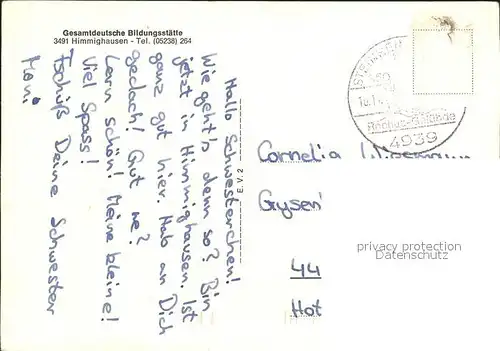 Gesamtdeutsche Bildungsstätte
3491 Himmighausen - Tel. (05238) 264
Hallo Schwesterchen!
Wie geht's denn so? Bin
jetzt in Himmighausen. Ist
ganz gut hier. Hab an Dich
gedacht! Gut ne?
Lern schön! Meine kleine!
Viel Spass!
Tschüß Deine Schwester
Moni
E.V.2
4939
Cornelia
Gysen
44
Hot
privacy protection
Datenschutz